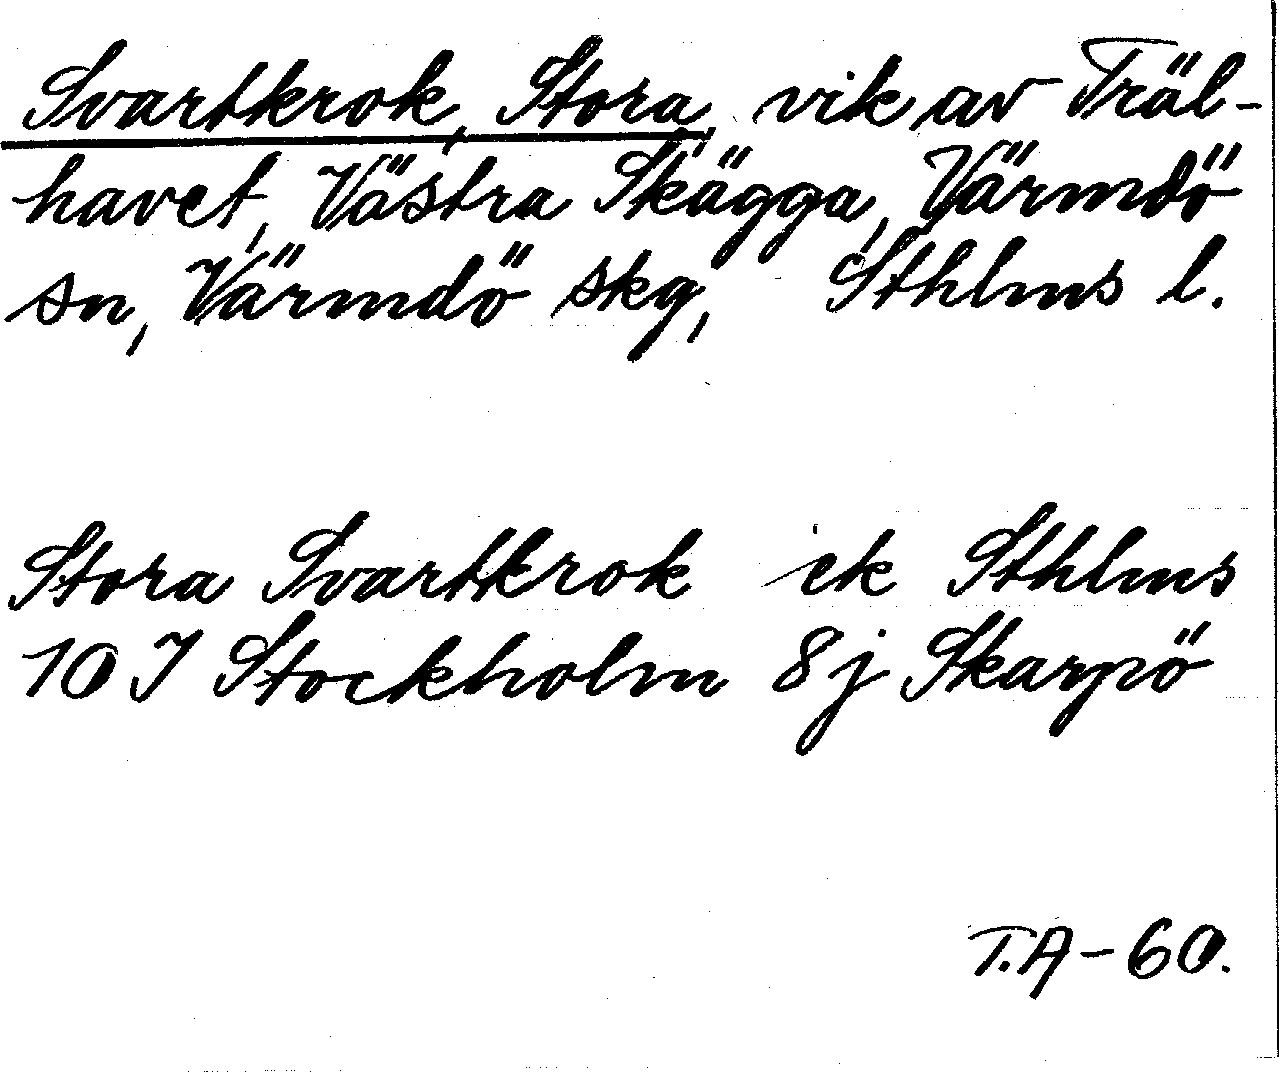 Svartkrok, Stora, vik av Träl-
havet, Västra Skägga, Värmdö
sn, Värmdö skg, Sthlms l.
Stora Svartkrok ek Sthlms
10 I Stockholm 8 j Skarpö
T.A-60.